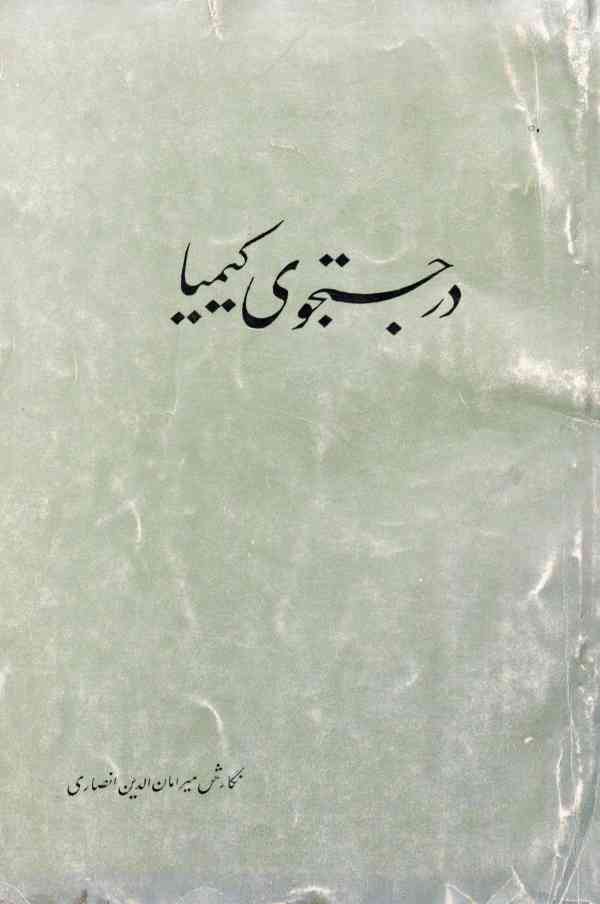 در جستجوی کیمیا
نگارش میر امان الدین انصاری